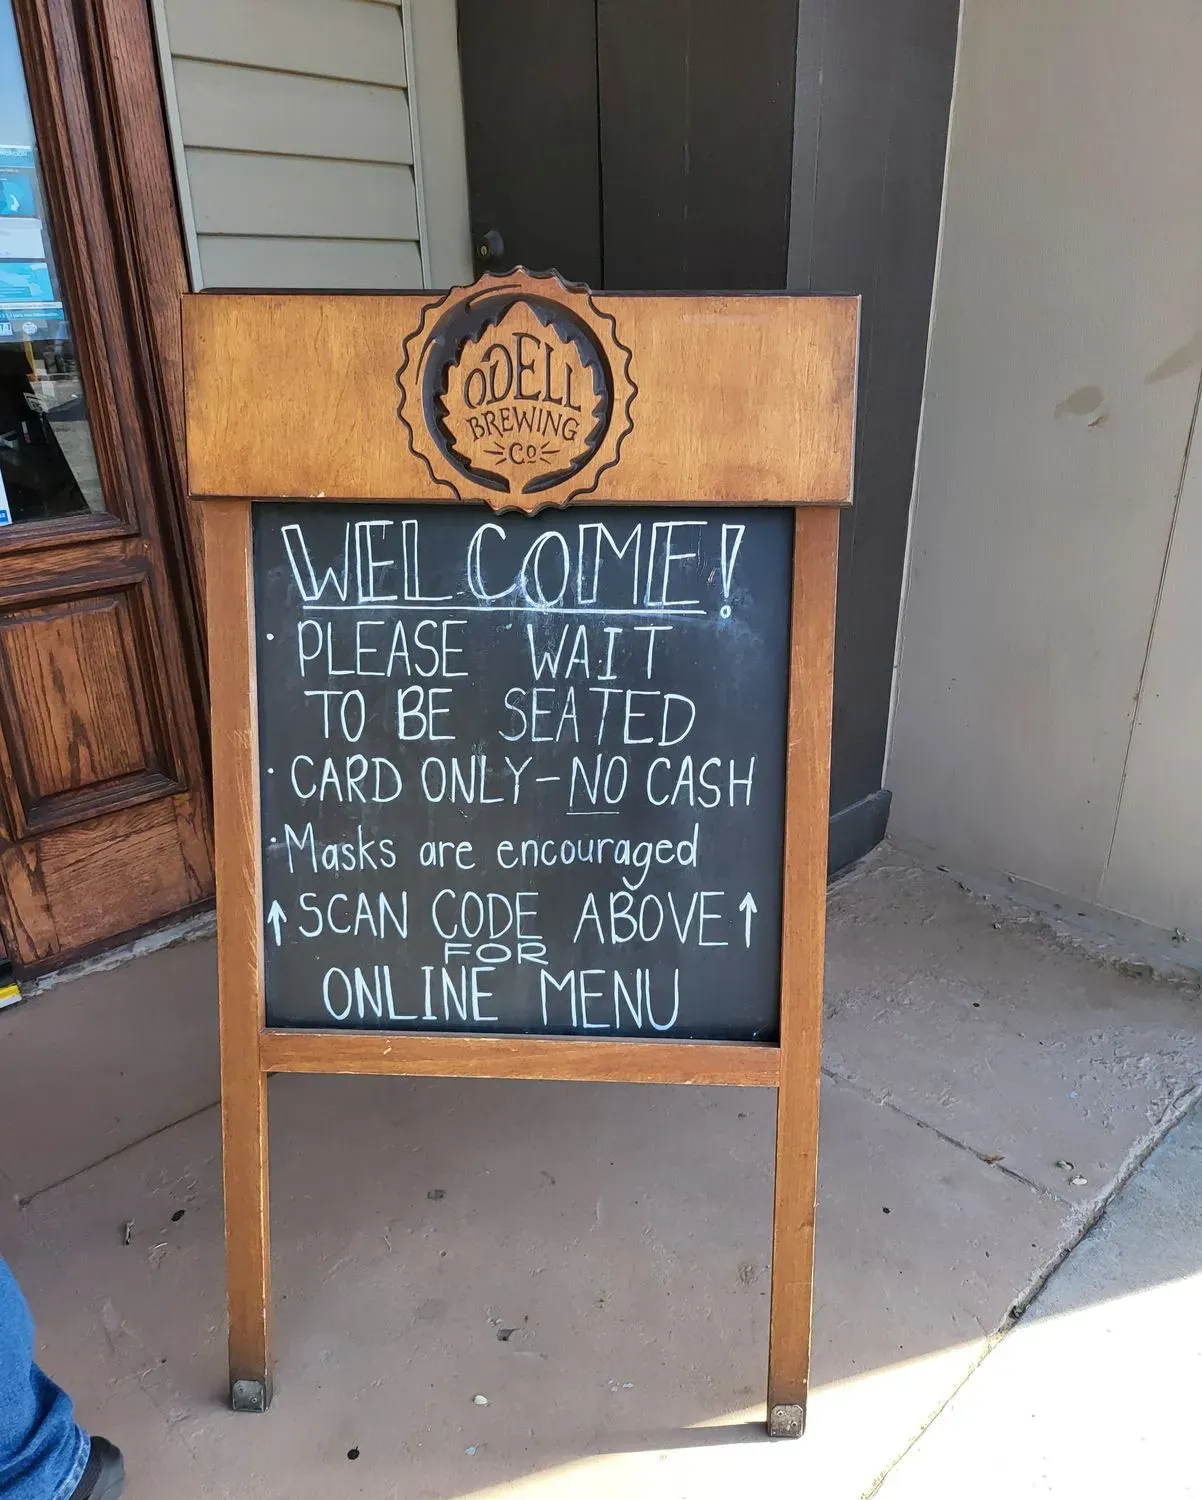 ODELL
BREWING
Co
WELCOME!
· PLEASE WAIT
TO BE SEATED
· CARD ONLY-NO CASH
· Masks are encouraged
↑ SCAN CODE ABOVE ↑
FOR
ONLINE MENU